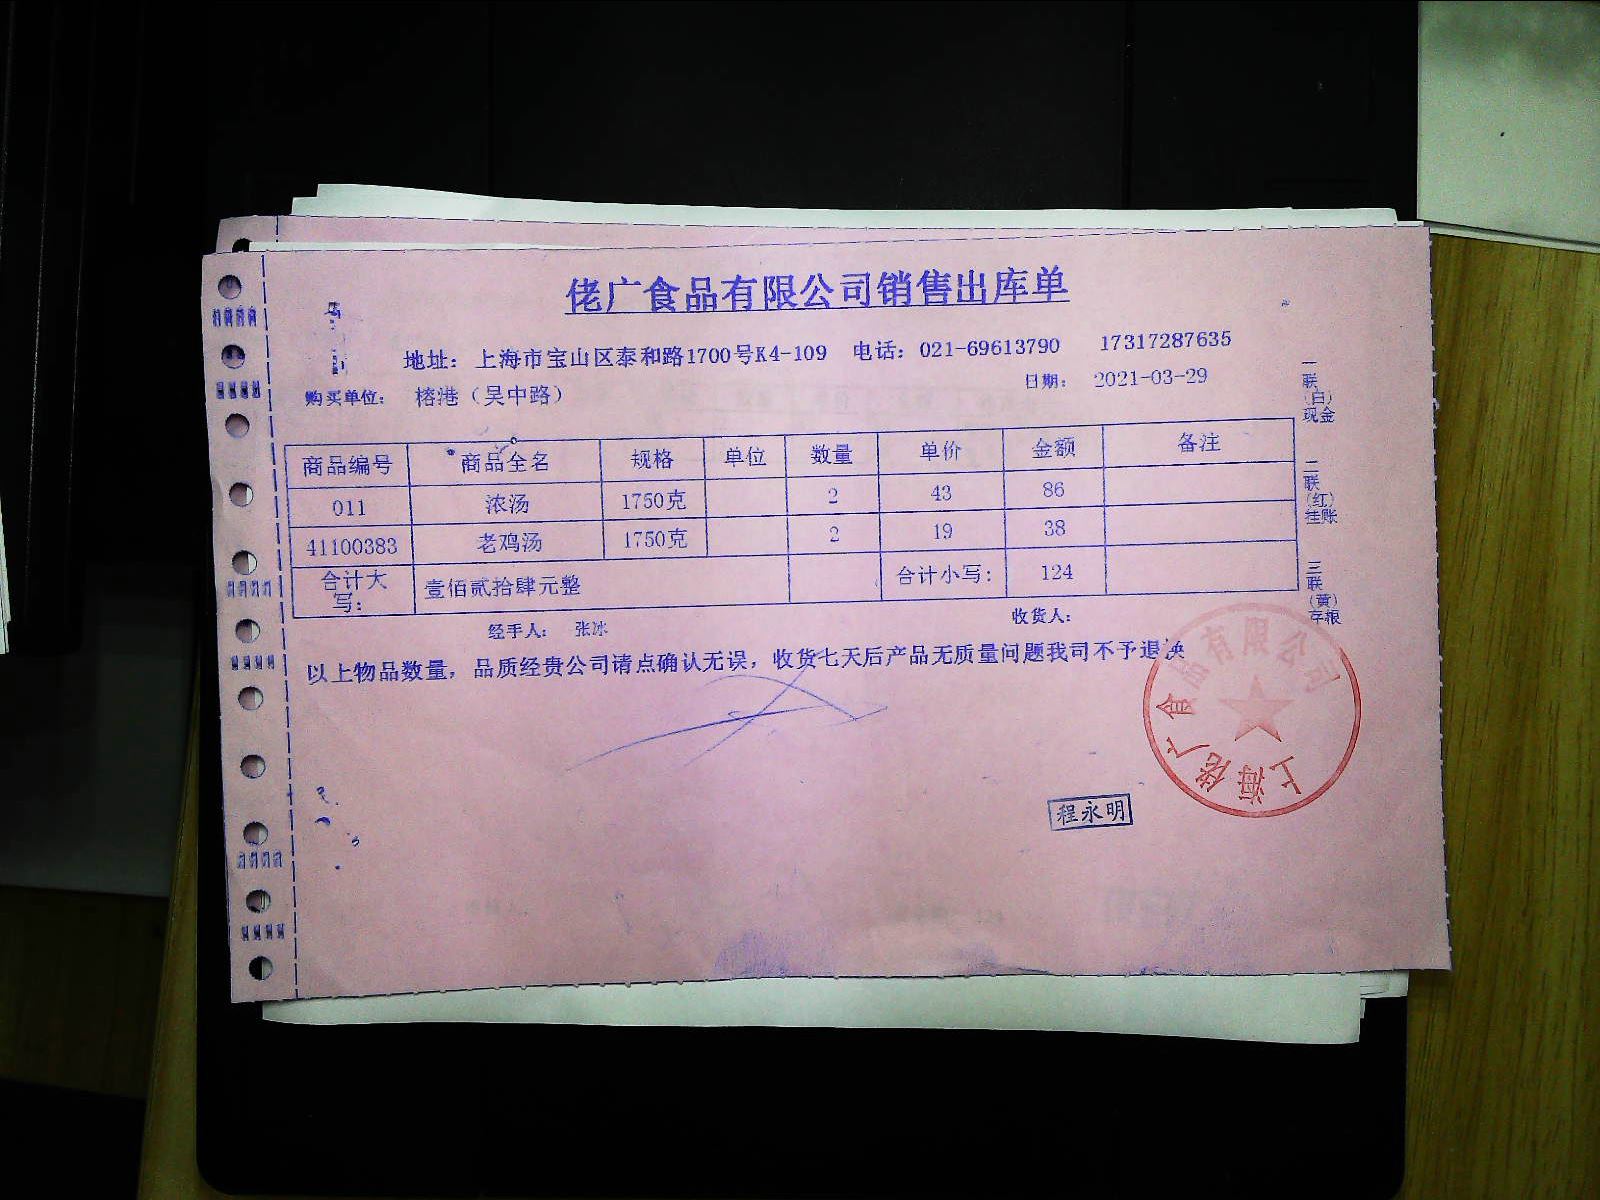 佬广食品有限公司销售出库单
地址：上海市宝山区泰和路1700号K4-109 电话：021-69613790 17317287635
购买单位： 榕港（吴中路） 日期： 2021-03-29
商品编号 商品全名 规格 单位 数量 单价 金额 备注
011 浓汤 1750克 2 43 86
41100383 老鸡汤 1750克 2 19 38
合计大写： 壹佰贰拾肆元整 合计小写: 124
经手人： 张冰 收货人：
以上物品数量，品质经贵公司请点确认无误，收货七天后产品无质量问题我司不予退换
一联（白）现金
二联（红）挂账
三联（黄）存根
上海佬广食品有限公司
程永明